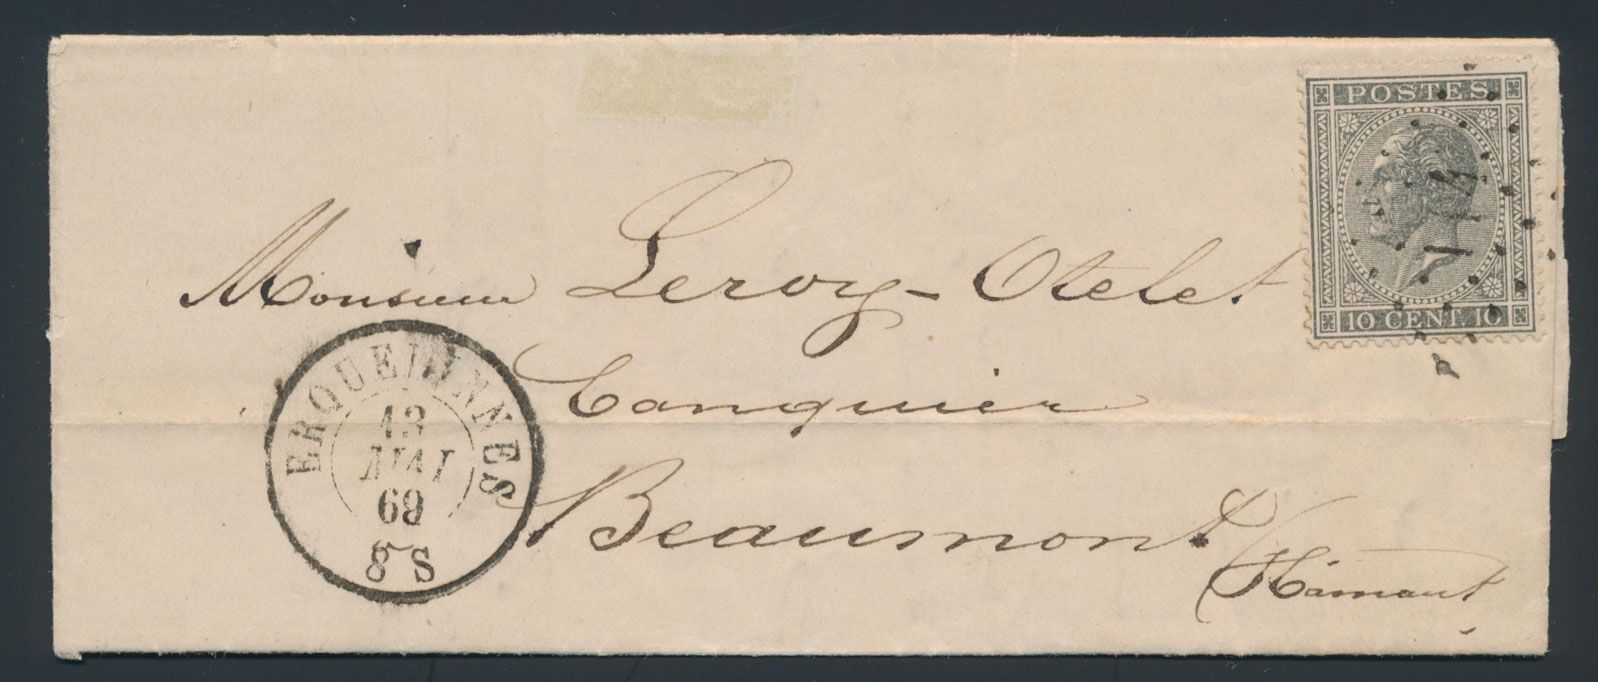 POSTES
114
10 CENT. 10
Monsieur Leroy-Otelet
Banquier
Beaumont
Hainaut
ERQUELINNES
13
MAI
69
8 S